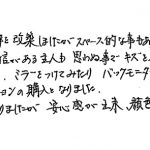 を改築しましたがスペース的な事もあ
信がある主人も 思わぬ事でキズを
、ミラーをつけてみたり バックモニタ
ョンの購入となりました。
りましたが 安心感が出来、顔色